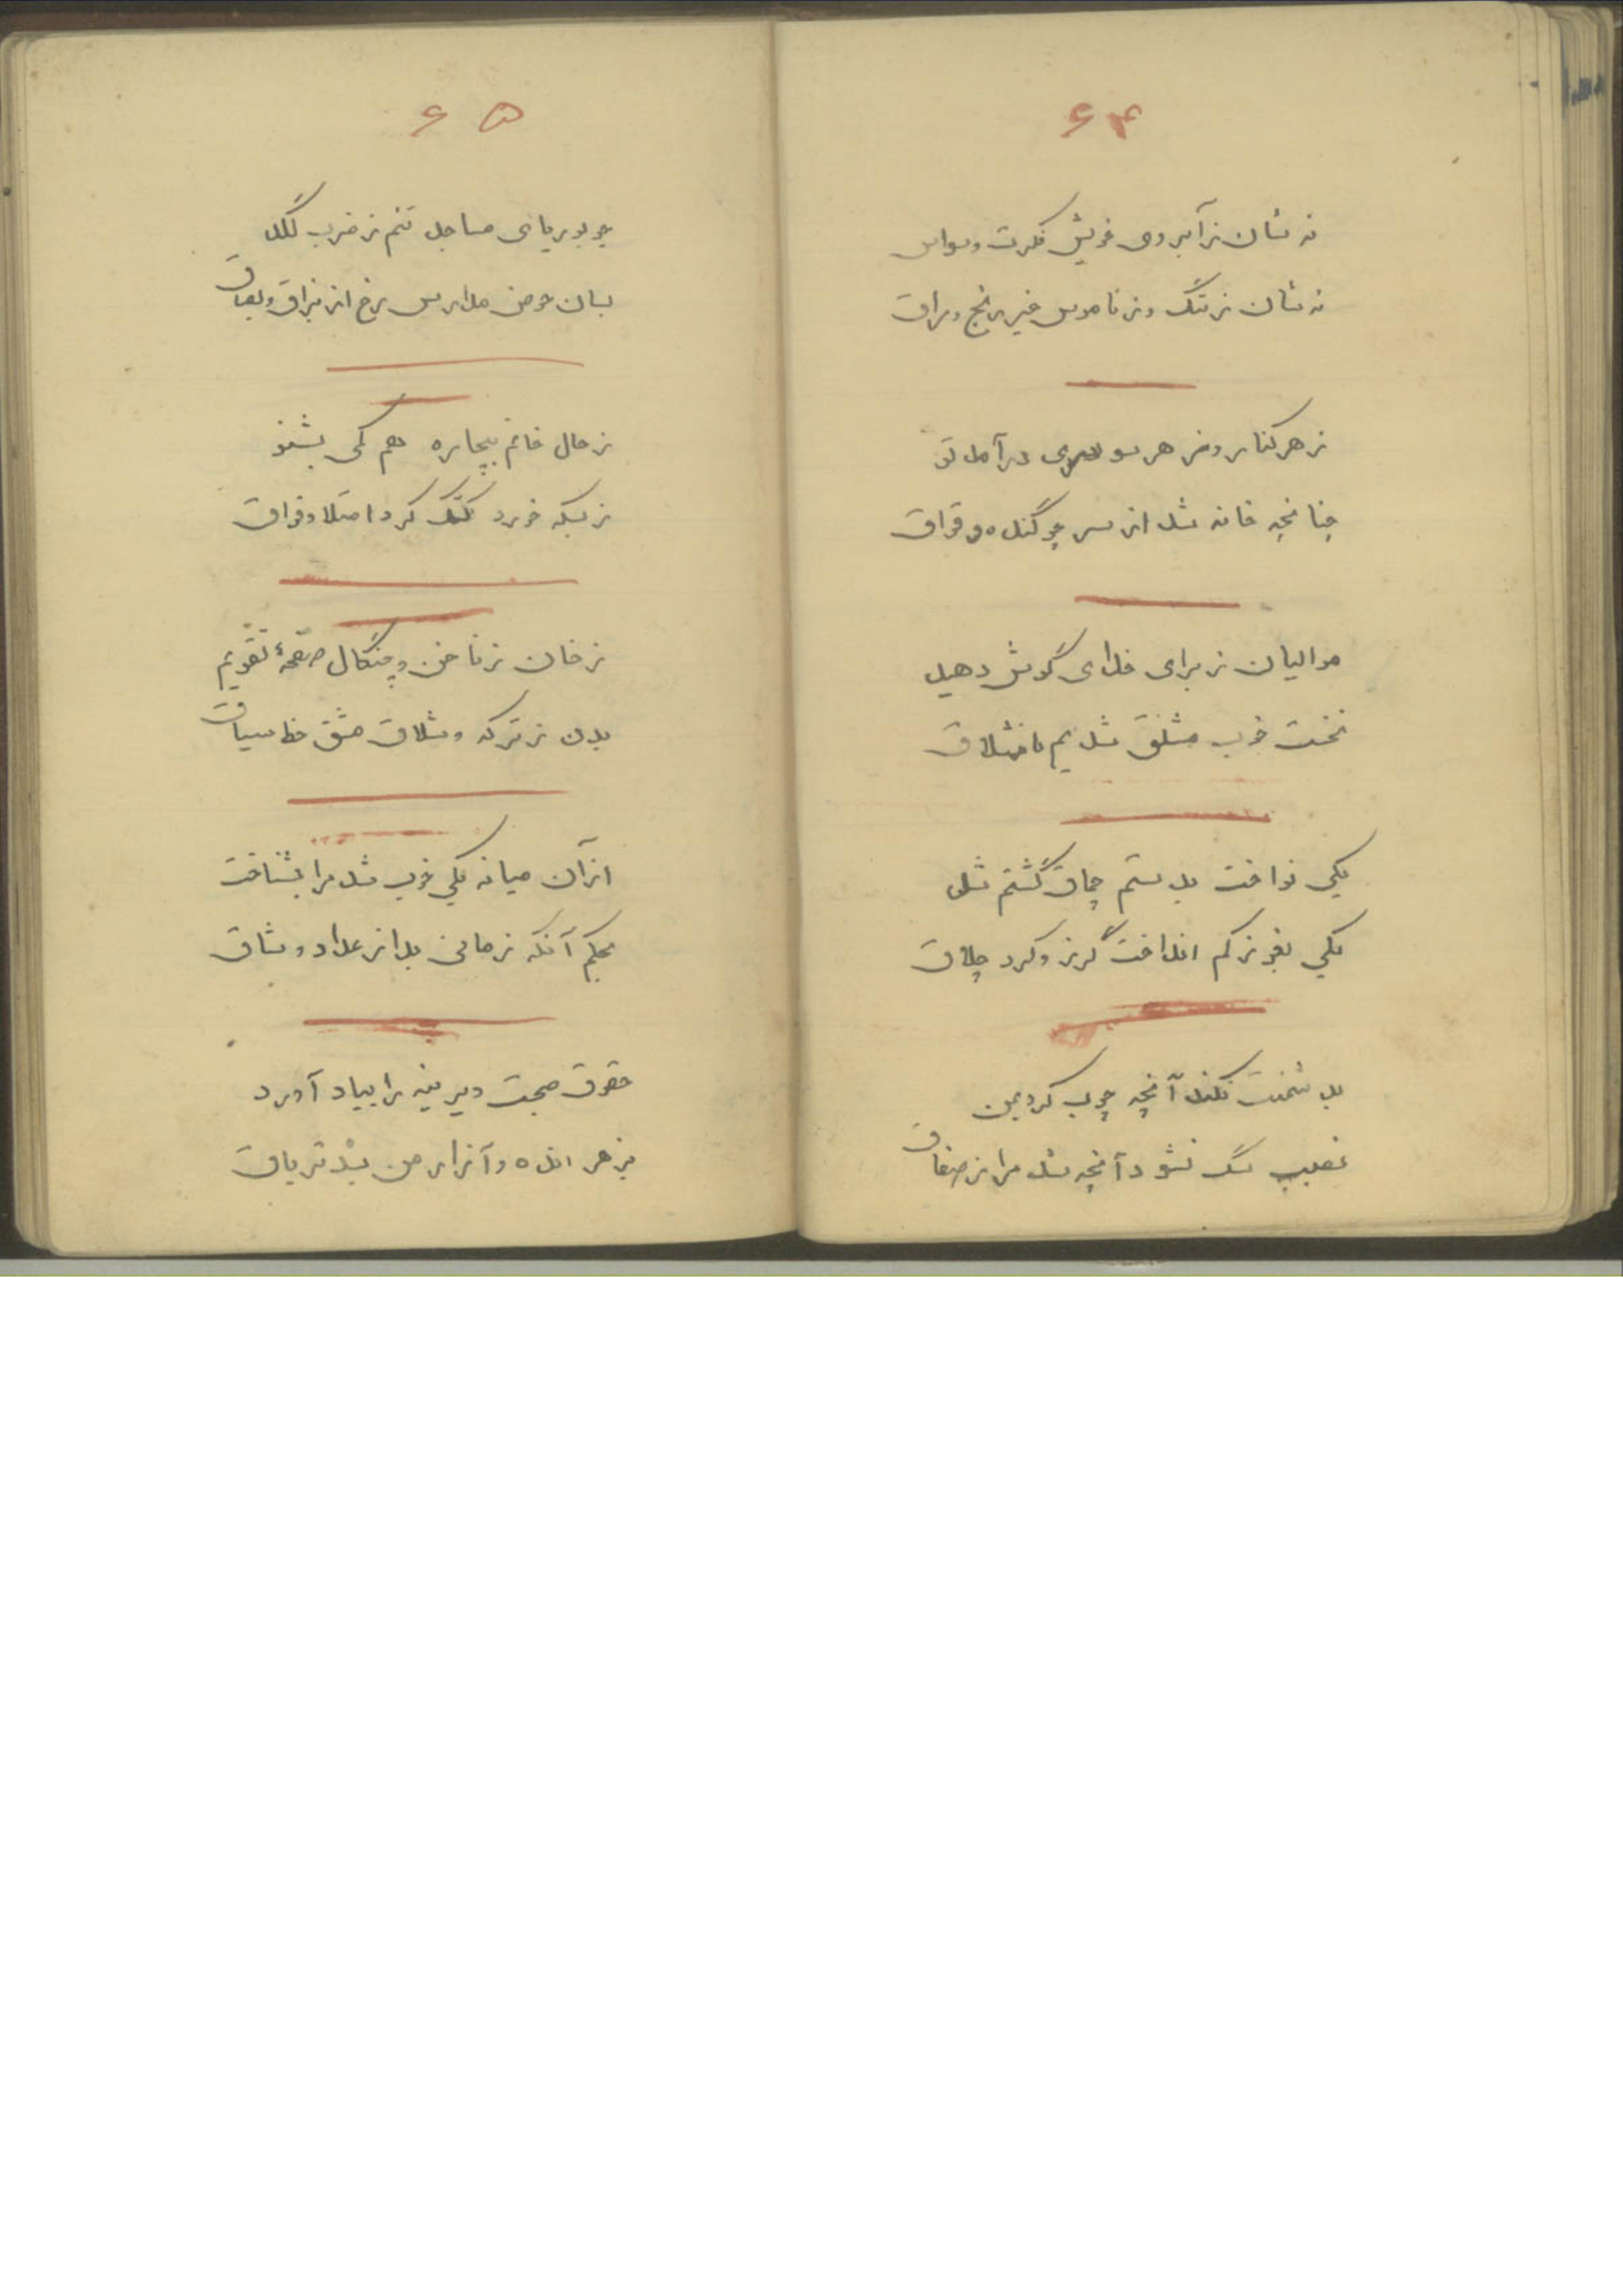 ۶۴
نه شان ز آبروی خویش فکرت و سواس
نه شان ز ننگ و ز ناموس غیر رنج و مراق
ز هر کنار و ز هر سو سری درآمد تو
چنانچه خانه شد از سر چو گنده و قراق
موالیان ز برای خدای گوش دهید
نخست خوب مشنق شدیم با شلاق
یکی نواخت بدستم چماق گشتم شل
یکی بقوزکم انداخت گرز و کرد چلاق
بدشمنت نکند آنچه چوب کرد بمن
نصیب سگ نشود آنچه شد مرا ز صفاق
۶۵
چو بوریای مساجد تنم ز ضرب لگد
بسان حوض مدارس رخ از بزاق و بصاق
ز حال خانم بیچاره هم کمی بشنو
ز بسکه خورد کتک کرد امتلا و فواق
زخان ز ناخن و چنگال صفحهٔ تقویم
بدن ز ترکه و شلاق مشق خط سیاق
از آن میانه یکی خوب شد مرا بشناخت
بحکم آنکه زمانی بد از عداد وشاق
حقوق صحبت دیرینه را بیاد آورد
بزهر اندۀ و آزار من بشد تریاق